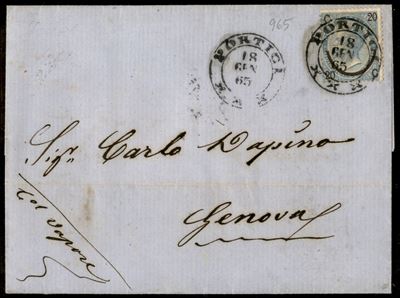 965
PORTICI
18
GEN
65
C 20
PORTICI
18
GEN
65
20 C
Sigr. Carlo Dapino
Genova
Col vapore